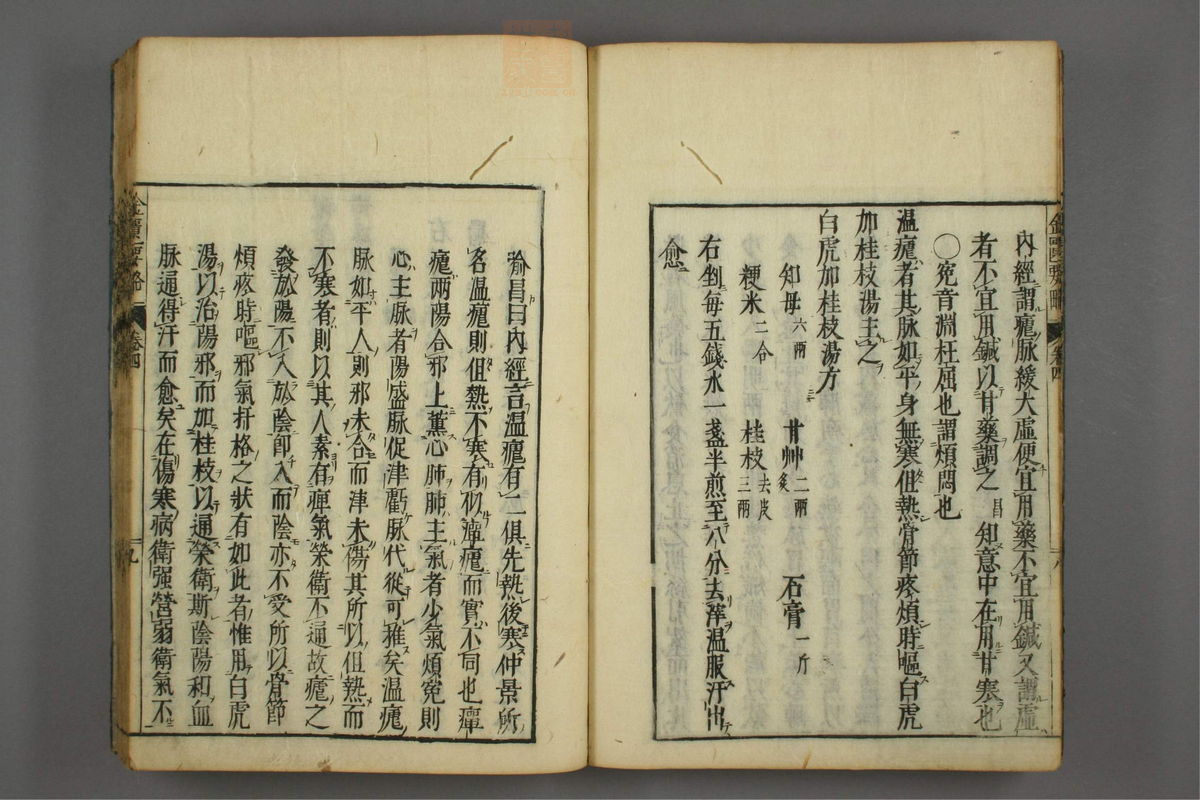 內經謂瘧脉緩大虛便宜用藥不宜用鍼又謂虛
者不宜用鍼以甘藥調之昌知意中在用甘寒也
〇寃音淵枉屈也謂煩悶也
温瘧者其脉如平身無寒但熱骨節疼煩時嘔白虎
加桂枝湯主之
白虎加桂枝湯方
知母六兩 甘艸二兩炙 石膏一斤
粳米二合 桂枝去皮三兩
右剉每五錢水一盞半煎至八分去滓温服汗出
愈
金匱要略 卷四 八
喻昌曰內經言温瘧有二俱先熱後寒仲景所
名温瘧則但熱不寒有似癉瘧而實不同也癉
瘧兩陽合邪上薰心肺肺主氣者少氣煩寃則
心主脉者陽盛脉促津虧脉代從可推矣温瘧
脉如平人則邪未合而津未傷其所以但熱而
不寒者則以其人素有痺氣榮衛不通故瘧之
發於陽不入於陰卽入而陰亦不受所以骨節
煩疼時嘔邪氣扞格之狀有如此者惟用白虎
湯以治陽邪而加桂枝以通榮衛斯陰陽和血
脉通得汗而愈矣在傷寒病衛强營弱衛氣不
金匱要略 卷四 九